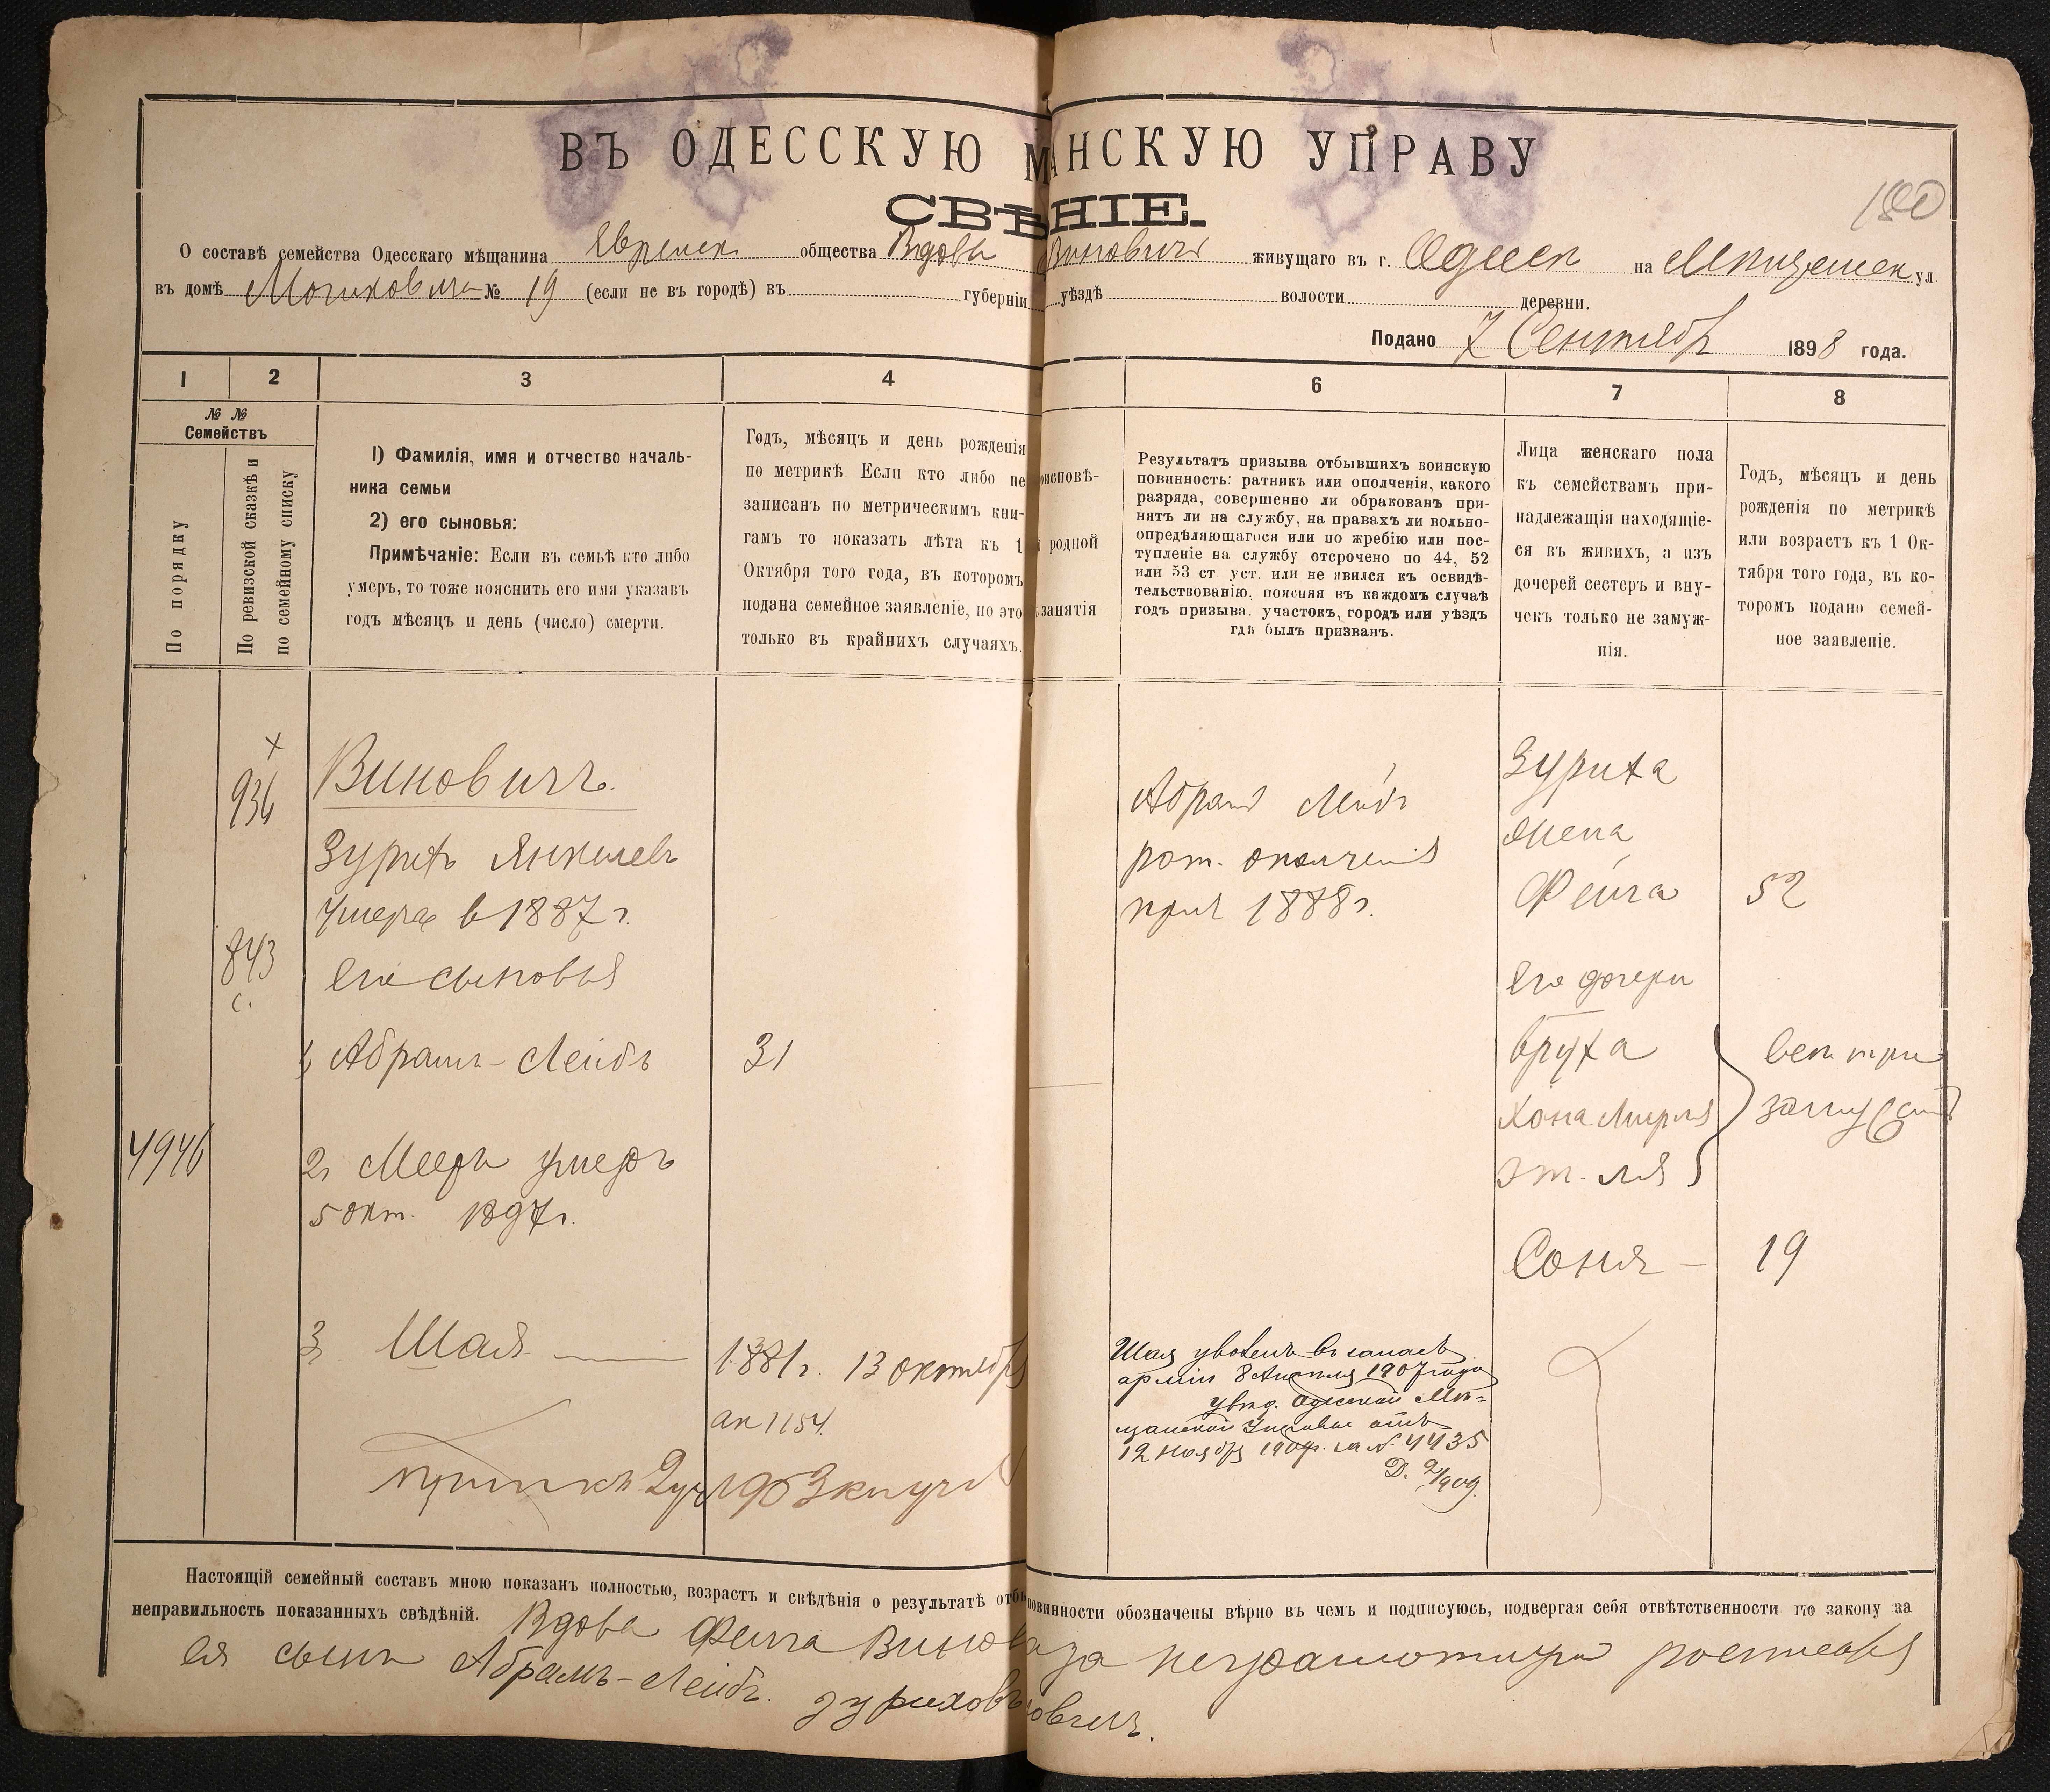 ВЪ ОДЕССКУЮ М АНСКУЮ УПРАВУ
СВѢ НІЕ.
180
О составѣ семейства Одесскаго мѣщанина общества Вдова Виновичъ живущаго въ г. Одесѣ на ул.
въ домѣ № 19 (если не въ городѣ) въ губерніи уѣздѣ волости деревни.
Подано 7 Сентября 1898 года.
1 2 3 4 6 7 8
№ №
Семействъ
По порядку
По ревизской сказкѣ и
по семейному списку
1) Фамилія, имя и отчество началь-
ника семьи
2) его сыновья:
Примѣчаніе: Если въ семьѣ кто либо
умеръ, то тоже пояснить его имя указавъ
годъ мѣсяцъ и день (число) смерти.
Годъ, мѣсяцъ и день рожденія
по метрикѣ Если кто либо не
записанъ по метрическимъ кни-
гамъ то показать лѣта къ 1
Октября того года, въ которомъ
подана семейное заявленіе, но это
только въ крайнихъ случаяхъ.
исповѣ-
родной
занятія
Результатъ призыва отбывшихъ воинскую
повинность: ратникъ или ополченія, какого
разряда, совершенно ли обракованъ при-
нятъ ли на службу, на правахъ ли вольно-
опредѣляющагося или по жребію или пос-
тупленіе на службу отсрочено по 44, 52
или 53 ст уст. или не явился къ освидѣ-
тельствованію, поясняя въ каждомъ случаѣ
годъ призыва, участокъ, городъ или уѣздъ
гдѣ былъ призванъ.
Лица женскаго пола
къ семействамъ при-
надлежащія находящіе-
ся въ живихъ, а изъ
дочерей сестеръ и вну-
чекъ только не замуж-
нія.
Годъ, мѣсяцъ и день
рожденія по метрикѣ
или возрастъ къ 1 Ок-
тября того года, въ ко-
торомъ подано семей-
ное заявленіе.
936
Виновичъ.
Зурихъ Янкелевъ
умеръ в 1887 г.
843
с.
Его сыновья
1, Абрамъ-Лейбъ 31
4946
2, Мееръ умеръ
5 окт. 1897 г.
3, Шая 1881 г. 13 октября
ак 1154.
1903
Абрамъ Лейбъ
рат. ополченія
приз 1888 г.
Зуриха
жена
Фейга 52
Его дочери
Бруха
Хона Мирля
Этля
все три
замуж
Соня — 19
Шая уволенъ въ запасъ
арміи 8 Апрѣля 1907 года
увѣд. Одесской Мѣ-
щанской Управы отъ
12 Ноября 1907 г. за № 4435
Д. 1909.
Настоящій семейный составъ мною показанъ полностью, возрастъ и свѣдѣнія о результатѣ отбы повинности обозначены вѣрно въ чемъ и подписуюсь, подвергая себя отвѣтственности по закону за
неправильность показанныхъ свѣдѣній. Вдова Фейга Винов
а за неграмотную росписался
ея сынъ Абрамъ-Лейбъ. Зуриховъ
овичъ.